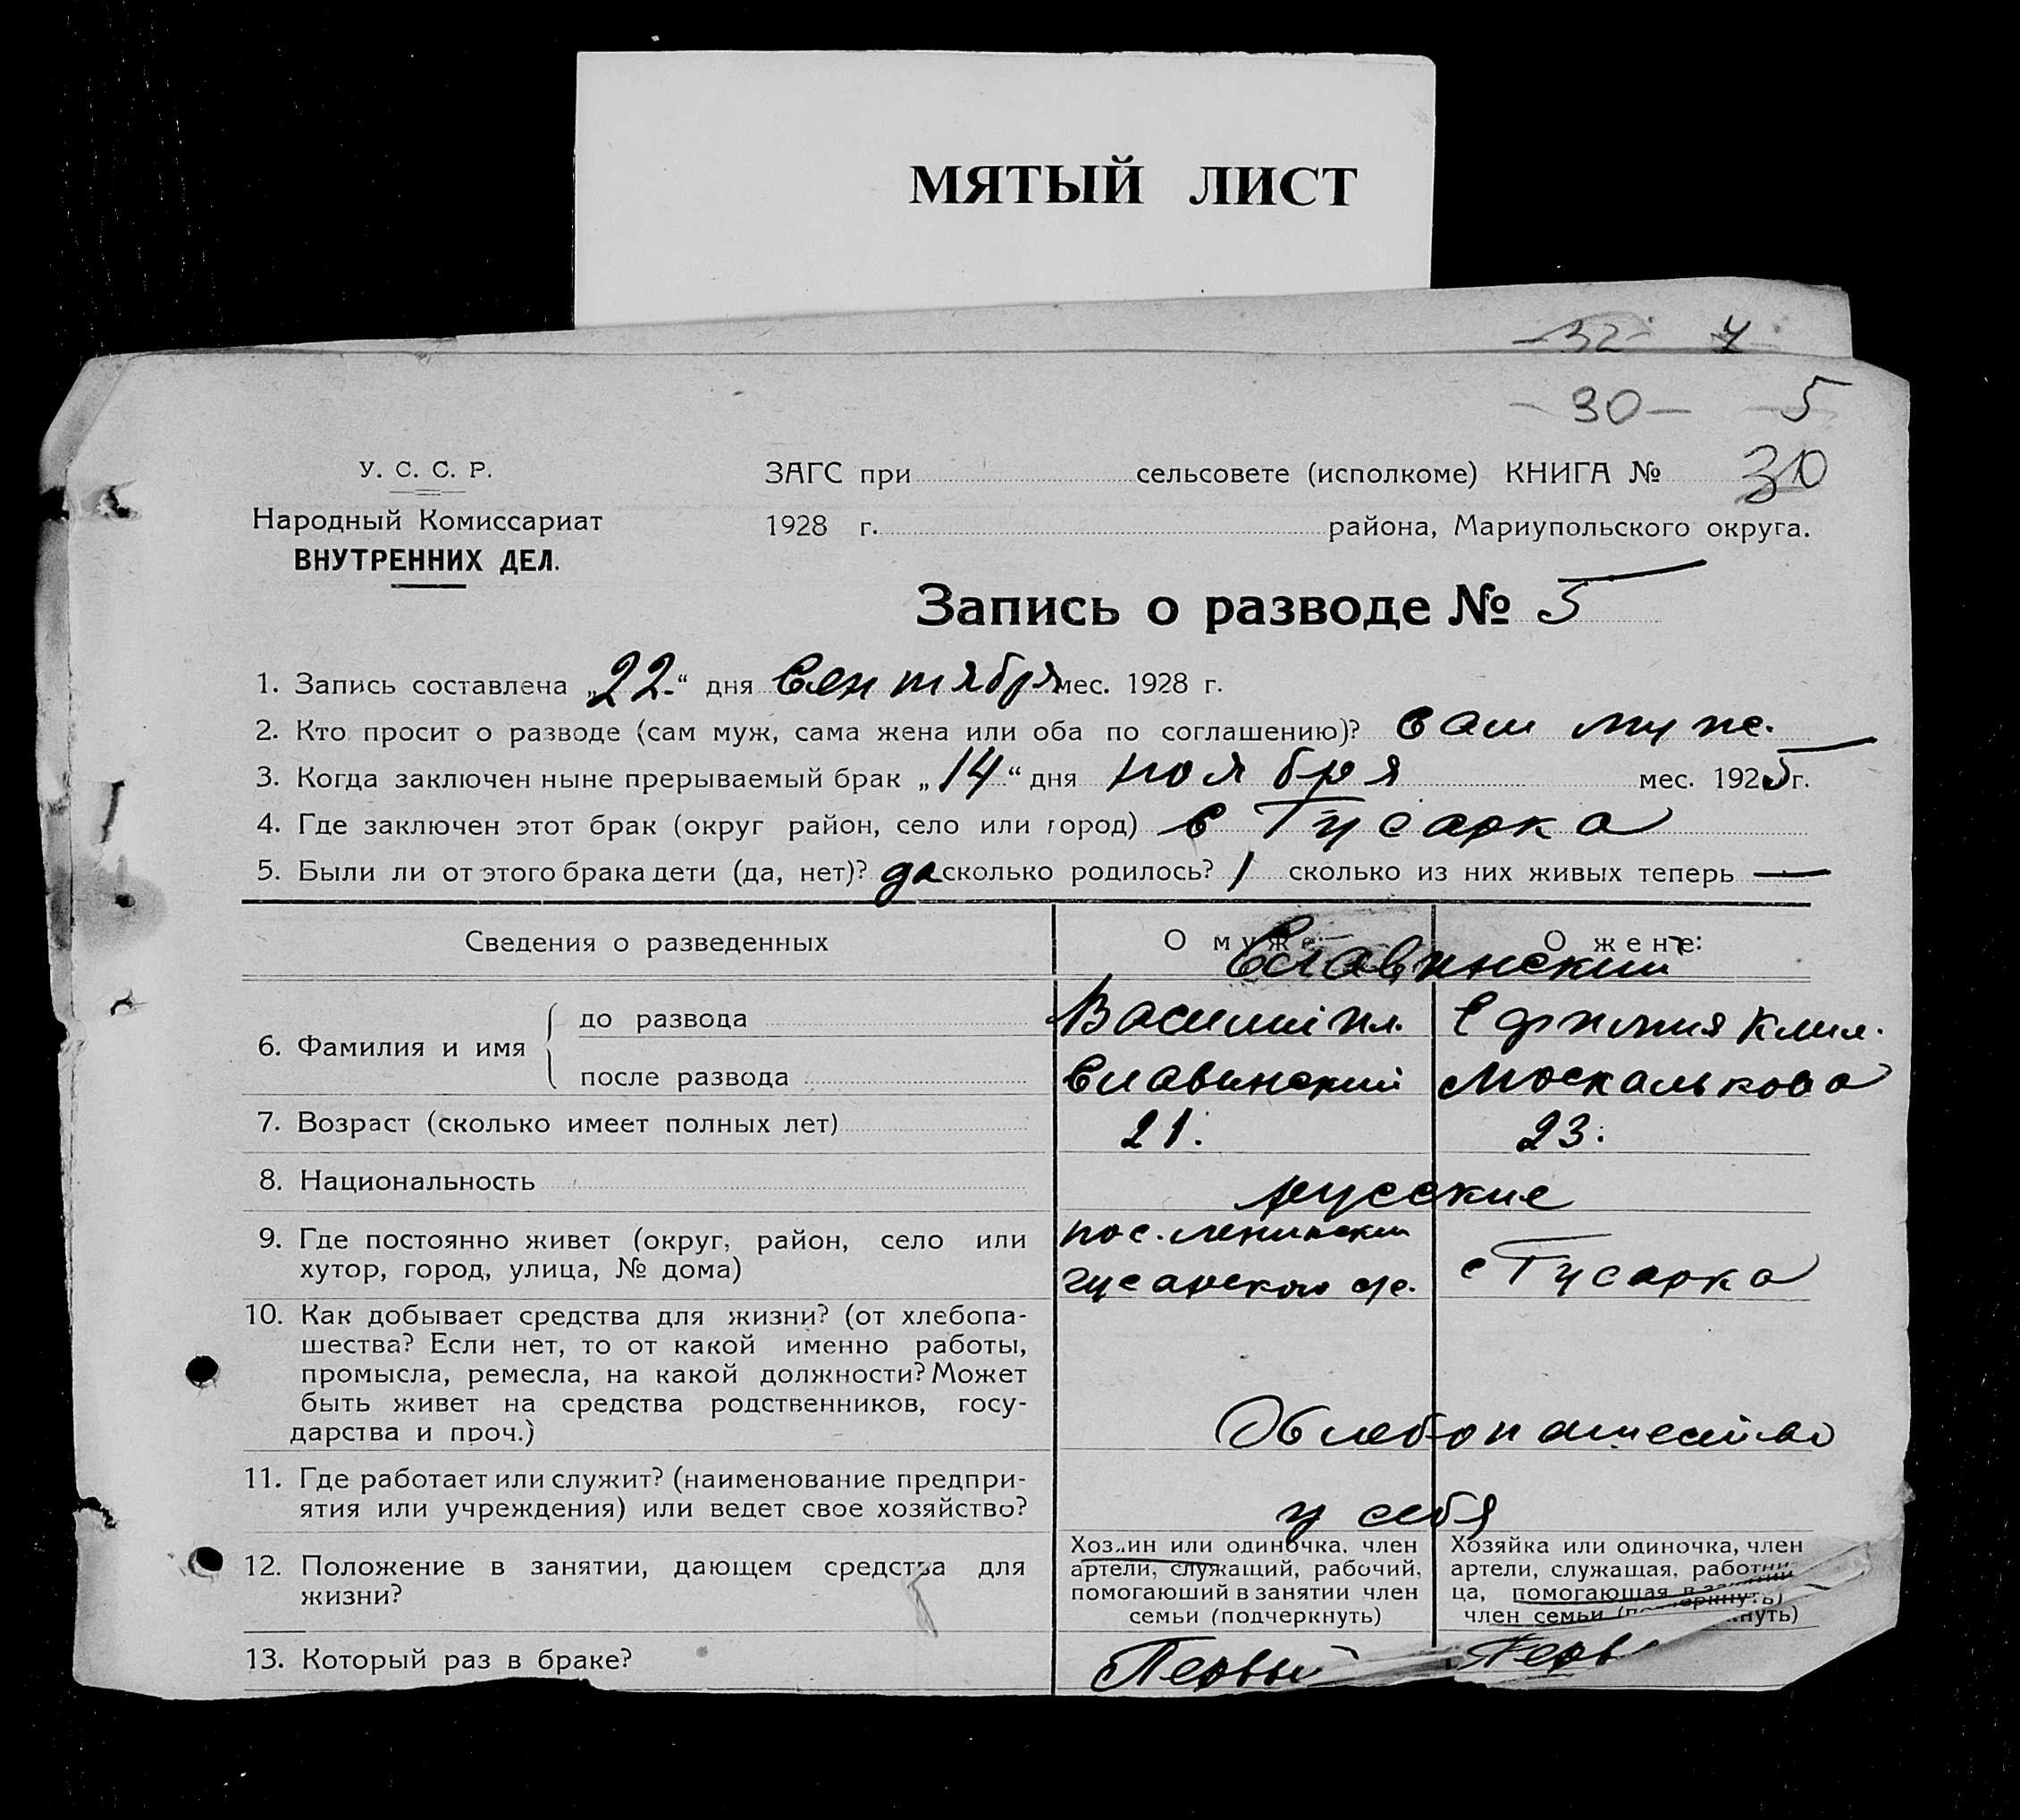 МЯТЫЙ ЛИСТ
-32- 7
-30- 5
У. С. С. Р. ЗАГС при сельсовете (исполкоме) КНИГА № 30
Народный Комиссариат 1928 г. района, Мариупольского округа.
ВНУТРЕННИХ ДЕЛ.
Запись о разводе № 5
1. Запись составлена „22“ дня Сентября мес. 1928 г.
2. Кто просит о разводе (сам муж, сама жена или оба по соглашению)? сам муж.
3. Когда заключен ныне прерываемый брак „14“ дня ноября мес. 1925 г.
4. Где заключен этот брак (округ район, село или город) в Гусарка
5. Были ли от этого брака дети (да, нет)? да сколько родилось? 1 сколько из них живых теперь —
Сведения о разведенных О муже: О жене:
Славинский
6. Фамилия и имя до развода Василий Ефимия Клим.
после развода Славинский Москалькова
7. Возраст (сколько имеет полных лет) 21. 23.
8. Национальность русские
9. Где постоянно живет (округ, район, село или пос. Ленинский
хутор, город, улица, № дома) с Гусарка
10. Как добывает средства для жизни? (от хлебопа-
шества? Если нет, то от какой именно работы,
промысла, ремесла, на какой должности? Может
быть живет на средства родственников, госу-
дарства и проч.) Хлебопашество
11. Где работает или служит? (наименование предпри-
ятия или учреждения) или ведет свое хозяйство? у себя
12. Положение в занятии, дающем средства для
жизни?
Хоз..ин или одиночка, член
артели, служащий, рабочий,
помогаюший в занятии член
семьи (подчеркнуть)
Хозяйка или одиночка, член
артели, служащая, работни-
ца, помогающая в занятии
член семьи (подчеркнуть)
13. Который раз в браке? Первый Перв